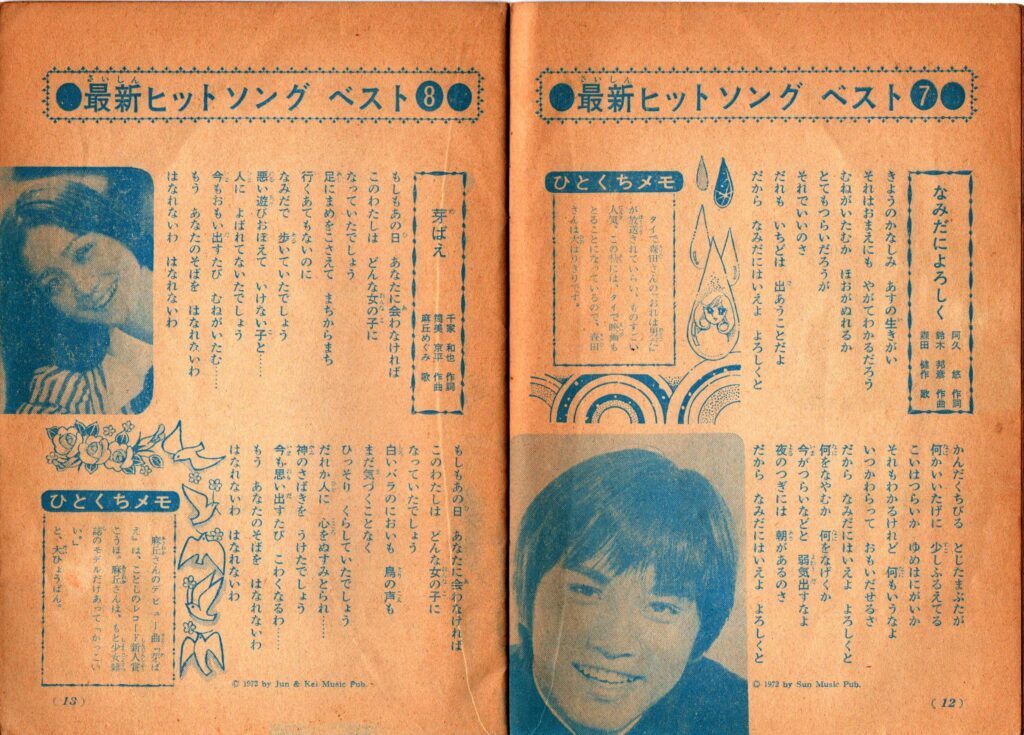 ●最新ヒットソング ベスト❼●
さいしん
なみだによろしく
阿久 悠 作詞
鈴木 邦彦 作曲
森田 健作 歌
きょうのかなしみ あすの生きがい
それはおまえにも やがてわかるだろう
むねがいたむか ほおがぬれるか
とてもつらいだろうが
それでいいのさ
だれも いちどは 出あうことだよ
だから なみだにはいえよ よろしくと
ひとくちメモ
タイで森田さんの「おれは男だ」
が放送されていらい、ものすごい
人気。この秋には、タイで映画も
とることになっているので、森田
さんは大はりきりです。
かんだくちびる とじたまぶたが
何かいいたげに 少しふるえてる
こいはつらいか ゆめはにがいか
それもわかるけれど 何もいうなよ
いつかわらって おもいだせるさ
だから なみだにはいえよ よろしくと
何をなやむか 何をなげくか
今がつらいなどと 弱気出すなよ
夜のつぎには 朝があるのさ
だから なみだにはいえよ よろしくと
© 1972 by Sun Music Pub.
(12)
●最新ヒットソング ベスト❽●
さいしん
芽ばえ
千家 和也 作詞
筒美 京平 作曲
麻丘めぐみ 歌
もしもあの日 あなたに会わなければ
このわたしは どんな女の子に
なっていたでしょう
足にまめをこさえて まちからまち
行くあてもないのに
なみだで 歩いていたでしょう
悪い遊びおぼえて いけない子と……
人に よばれてないたでしょう
今もおもい出すたび むねがいたむ……
もう あなたのそばを はなれないわ
はなれないわ はなれないわ
もしもあの日 あなたに会わなければ
このわたしは どんな女の子に
なっていたでしょう
白いバラのにおいも 鳥の声も
まだ気づくことなく
ひっそり くらしていたでしょう
だれか人に 心をぬすみとられ……
神のさばきを うけたでしょう
今も思い出すたび こわくなるわ……
もう あなたのそばを はなれないわ
はなれないわ はなれないわ
ひとくちメモ
麻丘さんのデビュー曲『芽ば
え』は、ことしのレコード新人賞
こうほ。麻丘さんは、もと少女雑
誌のモデルだけあって「かっこい
い」
と、大ひょうばん。
© 1972 by Jun & Kei Music Pub.
(13)